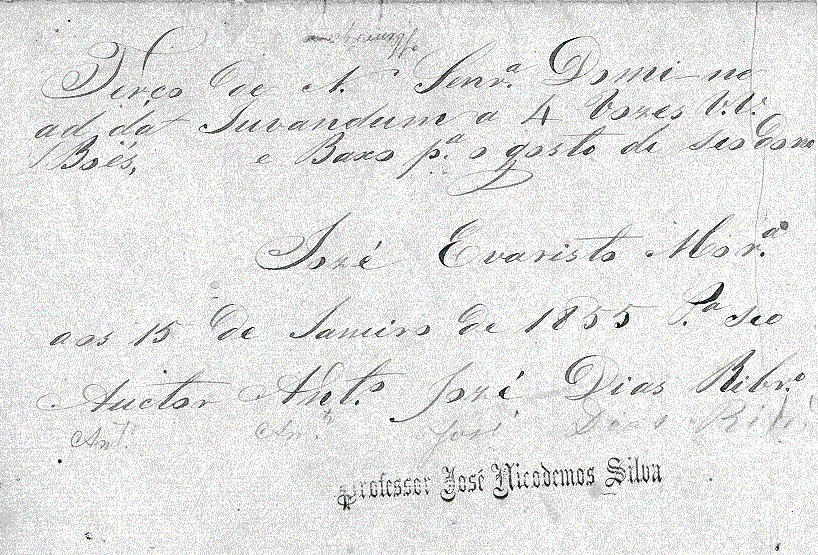 Terço de N. Senr.ª Domine
ad da Juvandum a 4 Vozes V.V.
Boés, e Baxo p.ª o gosto di seo Dono
Jozé Evaristo Mor.ª
aos 15 de Janeiro de 1855 P.ª seo
Auctor Ant.º Jozé Dias Ribr.º
Ant.º José Dias Rib
Professor José Nicodemos Silva